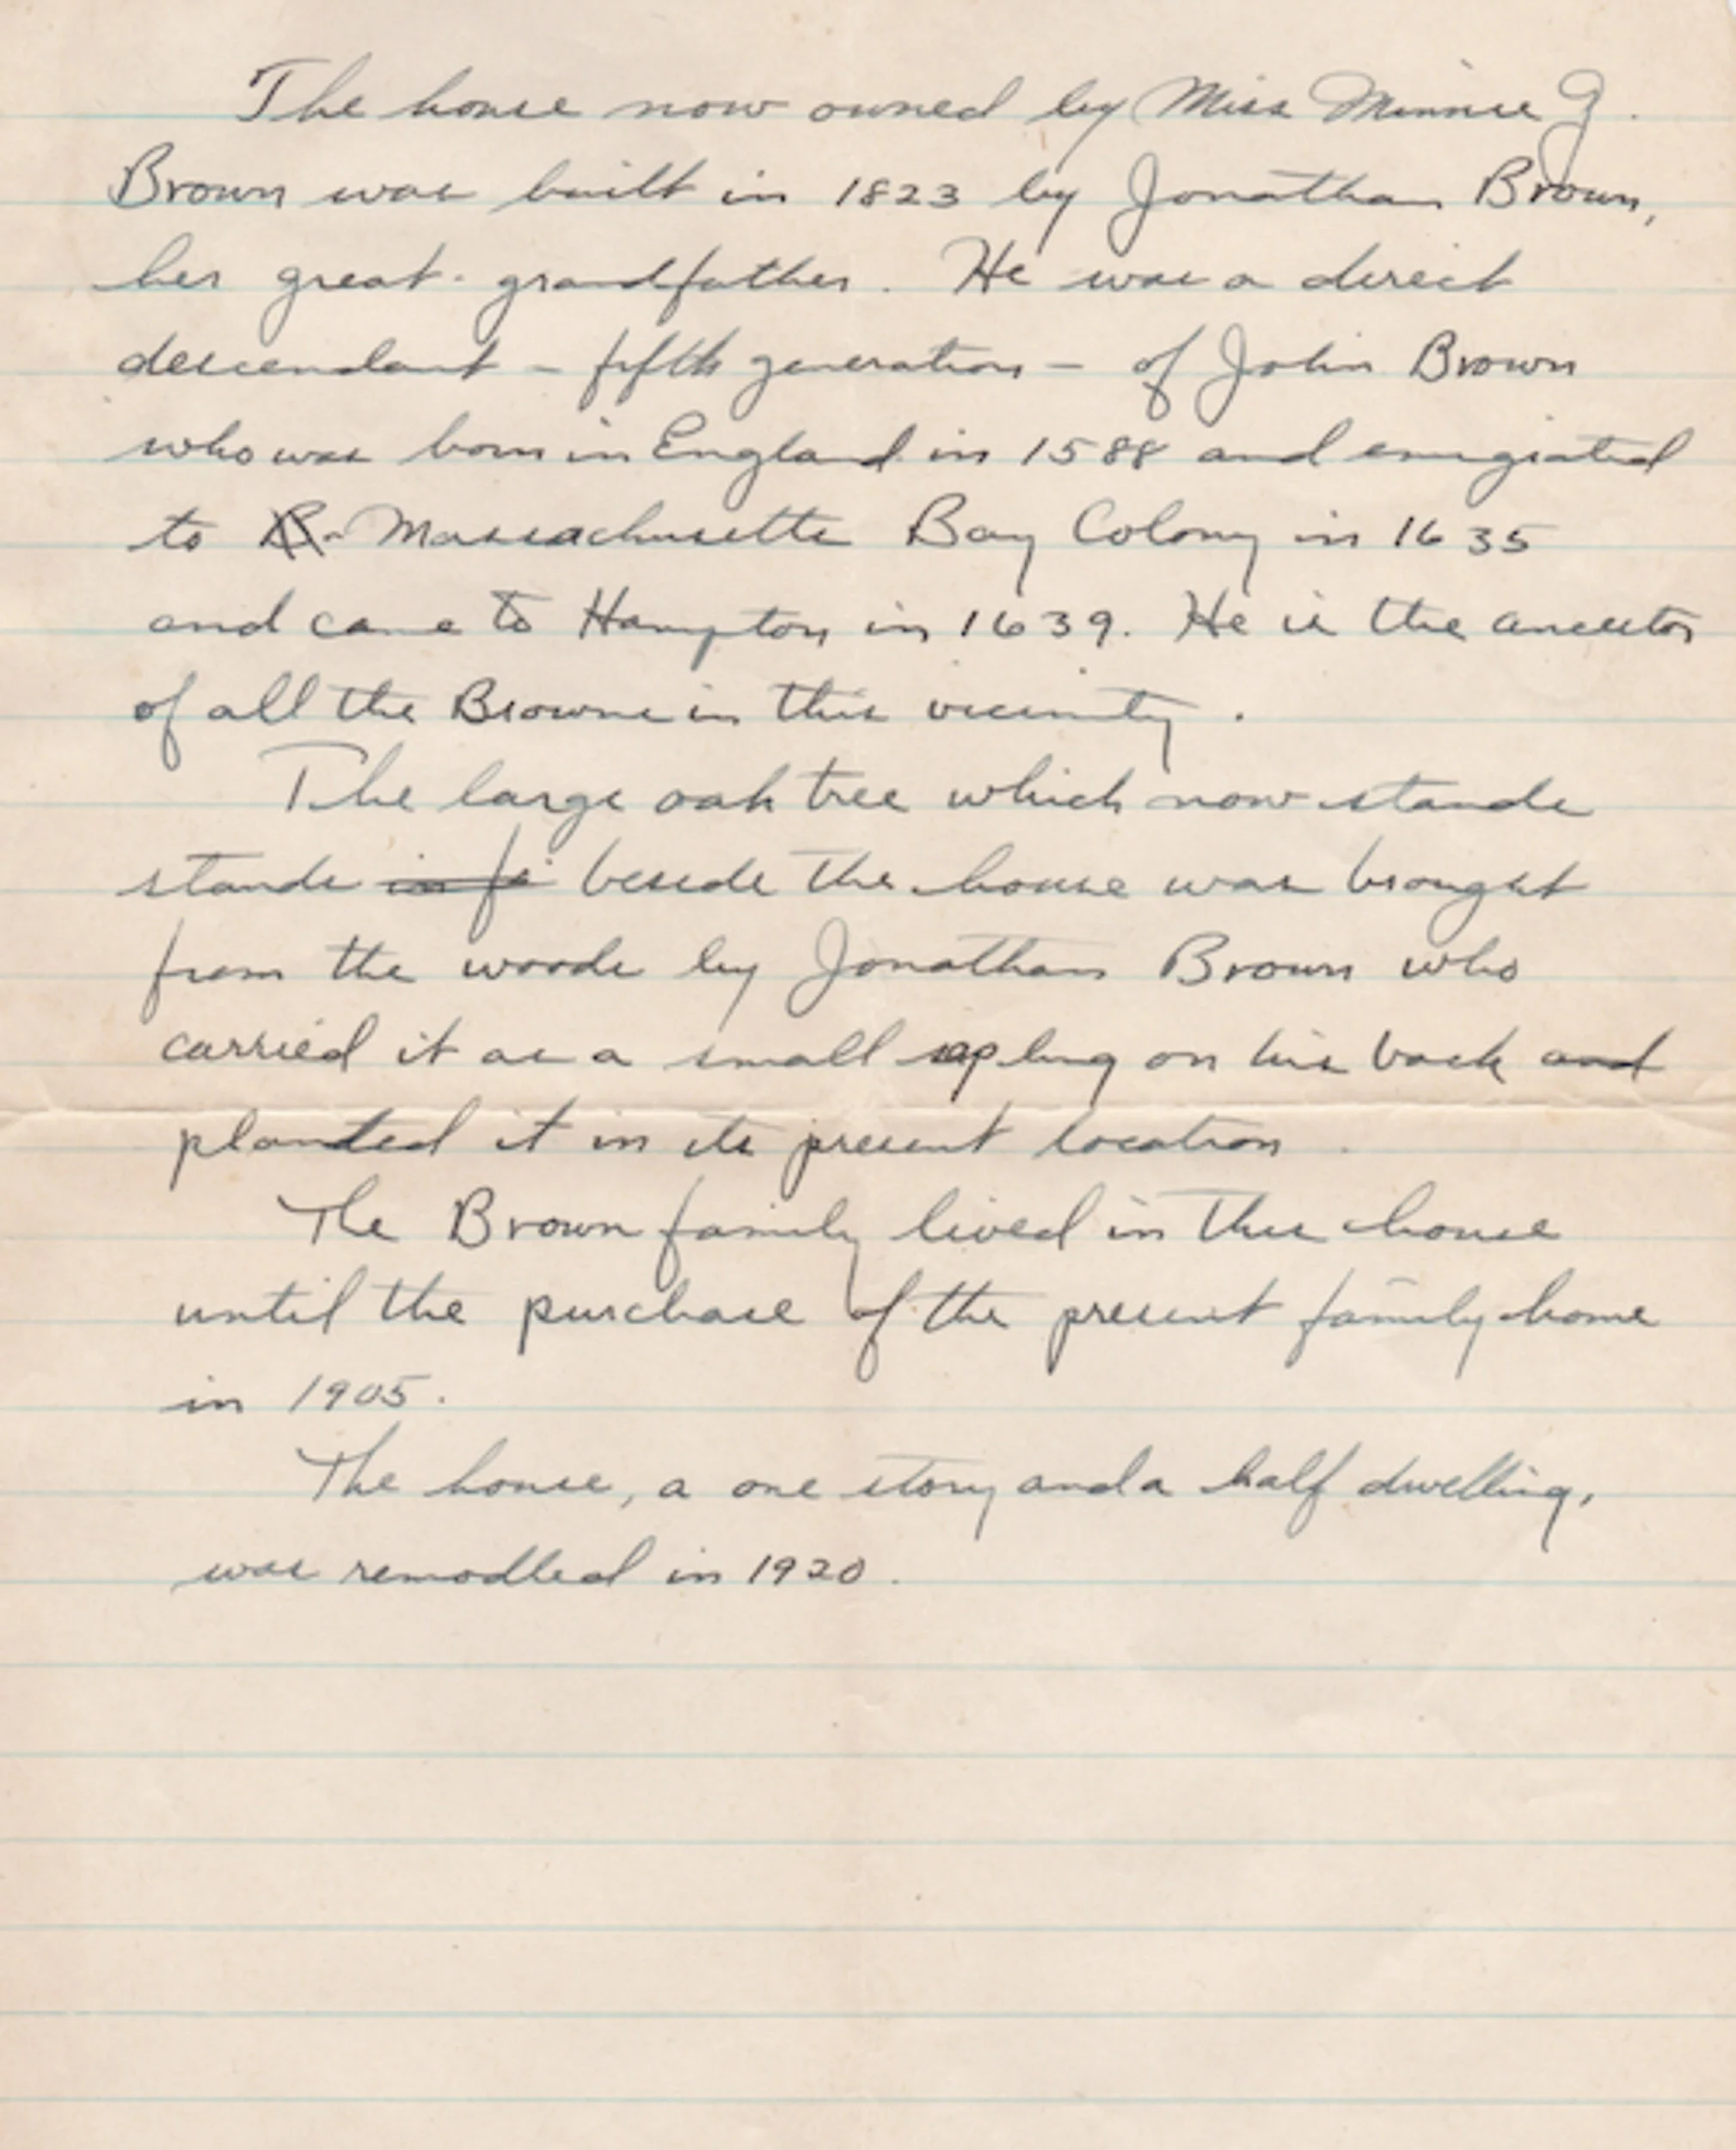 The house now owned by Miss Minnie G.
Brown was built in 1823 by Jonathan Brown,
her great-grandfather. He was a direct
descendant - fifth generation - of John Brown
who was born in England in 1588 and emigrated
to Massachusetts Bay Colony in 1635
and came to Hampton in 1639. He is the ancestor
of all the Browns in this vicinity.
The large oak tree which now stands
stands beside the house was brought
from the woods by Jonathan Brown who
carried it as a small sapling on his back and
planted it in its present location.
The Brown family lived in this house
until the purchase of the present family home
in 1905.
The house, a one story and a half dwelling,
was remodled in 1920.